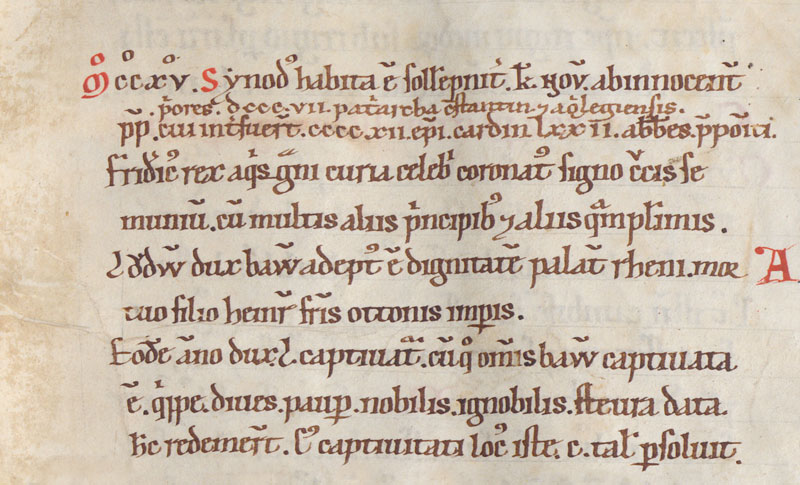 Mº ccº xº v. Synodꝰ habita ē sollēpnit̉. kl. Nov̄. ab innocentˀ
p̉ores. dccc.vii. patˀarcha c̄stantin̄ ⁊ aq̉legiensis.
pp̄. cui int̉fuer̄t. cccc.xii. ep̄i. cardin̄ lxxii. abb̄es. p̄pōiti.
Fridic̉ꝰ rex aq̉s. gͣni curia celebˀ coronatꝰ signo c̉cis se
muniuit̄. cū multis aliis p̉ncipibꝰ ⁊ aliis qͣmplˀimis.
Lodw̄ dux baw̄ adeptꝰ ē dignitatē palat̄ rheni. mor A
tuo filio heinr̄ fr̄is ottonis imp̄is.
Eodē āno dux .l. captiuat̉. cūq; om̄is baw̄ captiuata
ē. q̉ppe. diues. paup̄. nobilis. ignobilis. steura data.
hc̄ redemer̄t. Et captiuitati locꝰ iste. c. talˀ ꝑsoluit.